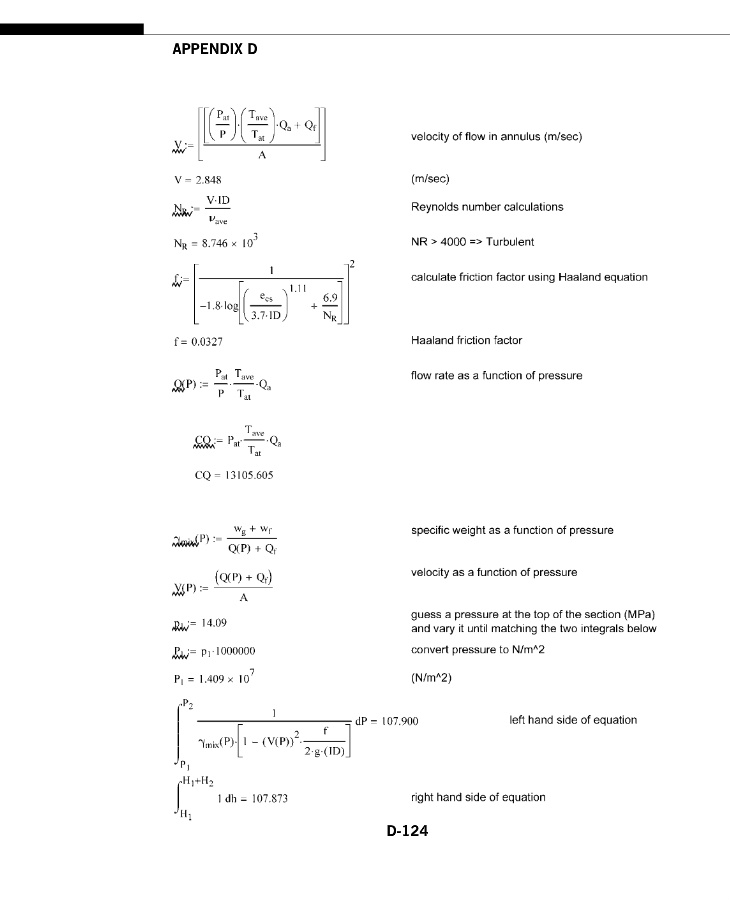 APPENDIX D
V := [[(P_at/P)·(T_ave/T_at)·Q_a + Q_f]/A] velocity of flow in annulus (m/sec)
V = 2.848 (m/sec)
N_R := V·ID/ν_ave Reynolds number calculations
N_R = 8.746 × 10^3 NR > 4000 => Turbulent
f := [1/(−1.8·log[(e_cs/(3.7·ID))^1.11 + 6.9/N_R])]^2 calculate friction factor using Haaland equation
f = 0.0327 Haaland friction factor
Q(P) := P_at/P·T_ave/T_at·Q_a flow rate as a function of pressure
CQ := P_at·T_ave/T_at·Q_a
CQ = 13105.605
γ_mix(P) := (w_g + w_f)/(Q(P) + Q_f) specific weight as a function of pressure
V(P) := (Q(P) + Q_f)/A velocity as a function of pressure
p_1 := 14.09 guess a pressure at the top of the section (MPa)
and vary it until matching the two integrals below
P_1 := p_1·1000000 convert pressure to N/m^2
P_1 = 1.409 × 10^7 (N/m^2)
∫_P_1^P_2 1/(γ_mix(P)·[1 − (V(P))^2·f/(2·g·(ID))]) dP = 107.900 left hand side of equation
∫_H_1^H_1+H_2 1 dh = 107.873 right hand side of equation
D-124